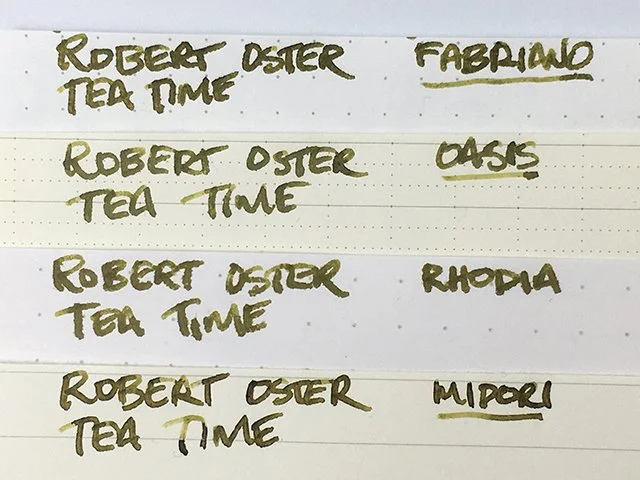 ROBERT OSTER FABRIANO
TEA TIME
ROBERT OSTER OASIS
TEA TIME
ROBERT OSTER RHODIA
TEA TIME
ROBERT OSTER MIDORI
TEA TIME